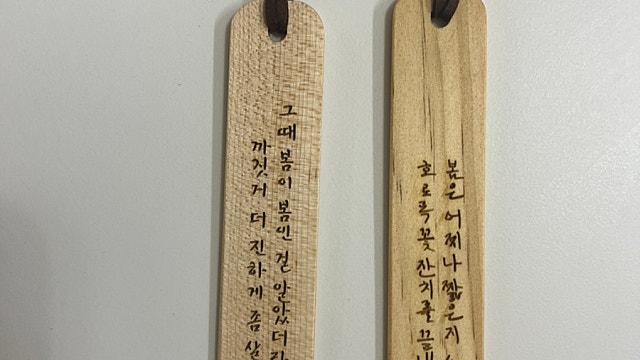 그때 봄이 봄인 걸 알았더라
까짓거 더 진하게 좀 살
봄은 어찌나 짧은지
호로록 꽃 잔치를 끝내